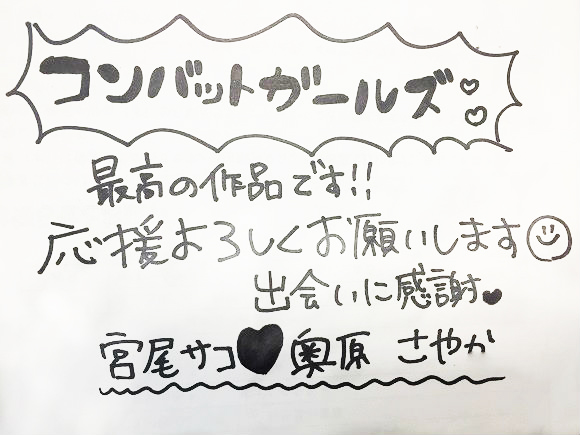 コンバットガールズ♡♡
最高の作品です!!
応援よろしくお願いします☺
出会いに感謝♥
宮尾サコ♥奥原 さやか